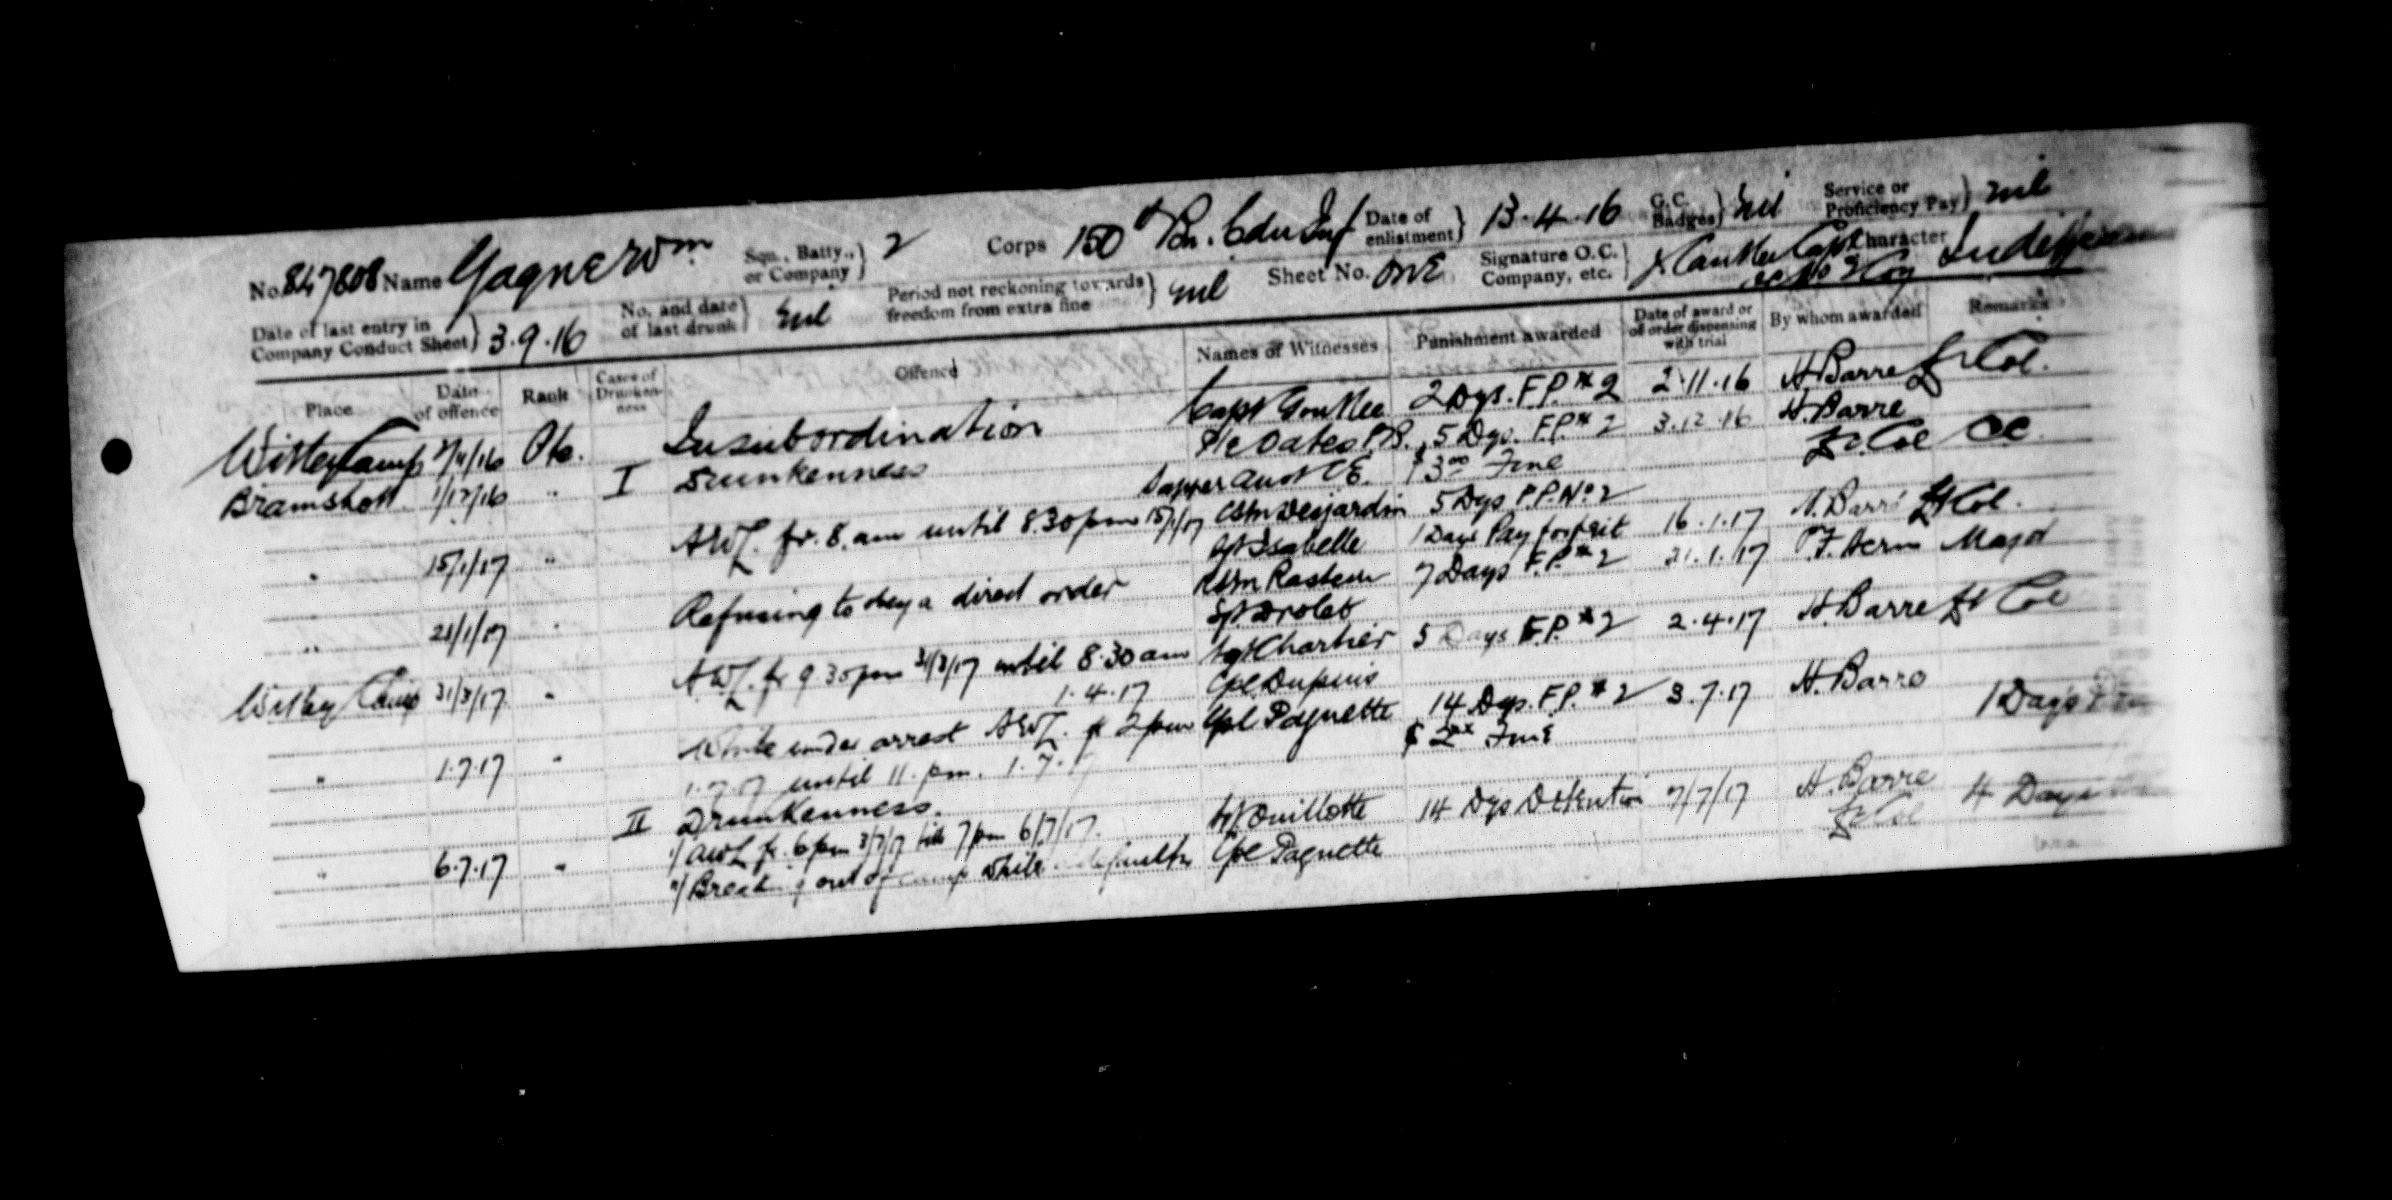 No. 847808 Name Gagne Wm Sqn., Batty., or Company } 2 Corps 150th Bn. Cdn Inf Date of enlistment } 13.4.16 G.C. Badges } nil Service or Proficiency Pay } nil
Date of last entry in Company Conduct Sheet } 3.9.16 No. and date of last drunk } nil Period not reckoning towards freedom from extra fine } nil Sheet No. ONE Signature O.C. Company, etc. } Capt Character
Place Date of offence Rank Cases of Drunkenness Offence Names of Witnesses Punishment awarded Date of award or of order dispensing with trial By whom awarded Remarks
Witley Camp 2/11/16 Pte. Insubordination Capt 2 Dys. F.P. # 2 2.11.16 H. Barre Lt Col.
Bramshott 1/12/16 " I Drunkenness P/c Oates P.B. 5 Dys. F.P. # 2 3.12.16 H. Barre
Sapper C.E. $3.00 Fine Lt Col OC.
" 15/1/17 " AWL. fr. 8. am until 8.30 pm 15/1/17 CSM Desjardin 5 Dys F.P. No 2 16.1.17 H. Barré Lt Col.
Sgt Isabelle 1 Days Pay forfeit
" 21/1/17 " Refusing to obey a direct order 7 Days F.P. # 2 21.1.17 Major
Sgt Drolet
Witley Camp 31/3/17 " AWL. fr 9.30 pm 31/3/17 until 8.30 am Sgt Chartier 5 Days F.P. # 2 2.4.17 H. Barre Lt Col
1.4.17 Cpl Dupuis
" 1.7.17 " While under arrest AWL. fr 2 pm Cpl Paquette 14 Dys. F.P. # 2 3.7.17 H. Barre 1 Days
1.7.17 until 11. pm. 1.7.17 $ 2 Fine
II Drunkenness.
" 6.7.17 " 1/ AWL fr. 6 pm 3/7/17 till 7 pm 6/7/17. Sgt Ouillette 14 Dys Detention 7/7/17 H. Barre 4 Days
2/ Breaking out of camp while defaulter Cpl Paquette Lt Col